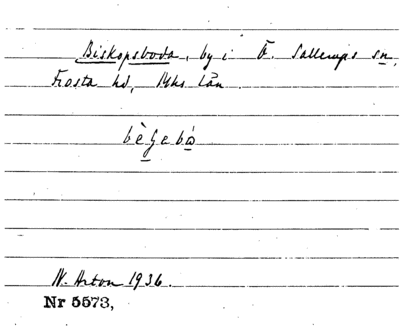 Biskopsboda, by i Ö. Sallerups sn,
Frosta hd, Mhs län.
bègebó
N. Arton 1936.
Nr 5573,